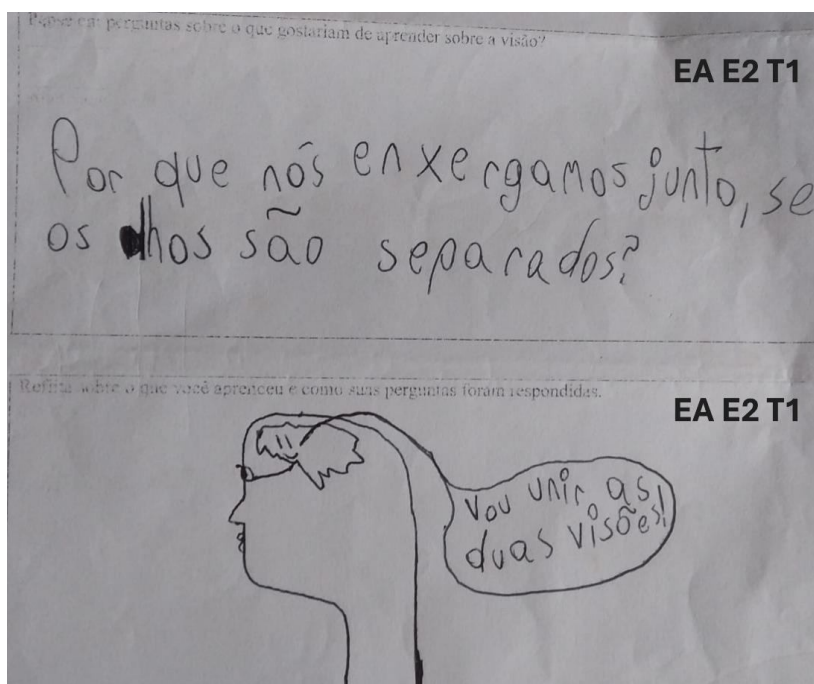 Pense em perguntas sobre o que gostariam de aprender sobre a visão?
EA E2 T1
Por que nós enxergamos junto, se
os olhos são separados?
Reflita sobre o que você aprendeu e como suas perguntas foram respondidas.
EA E2 T1
Vou unir as
duas visões!